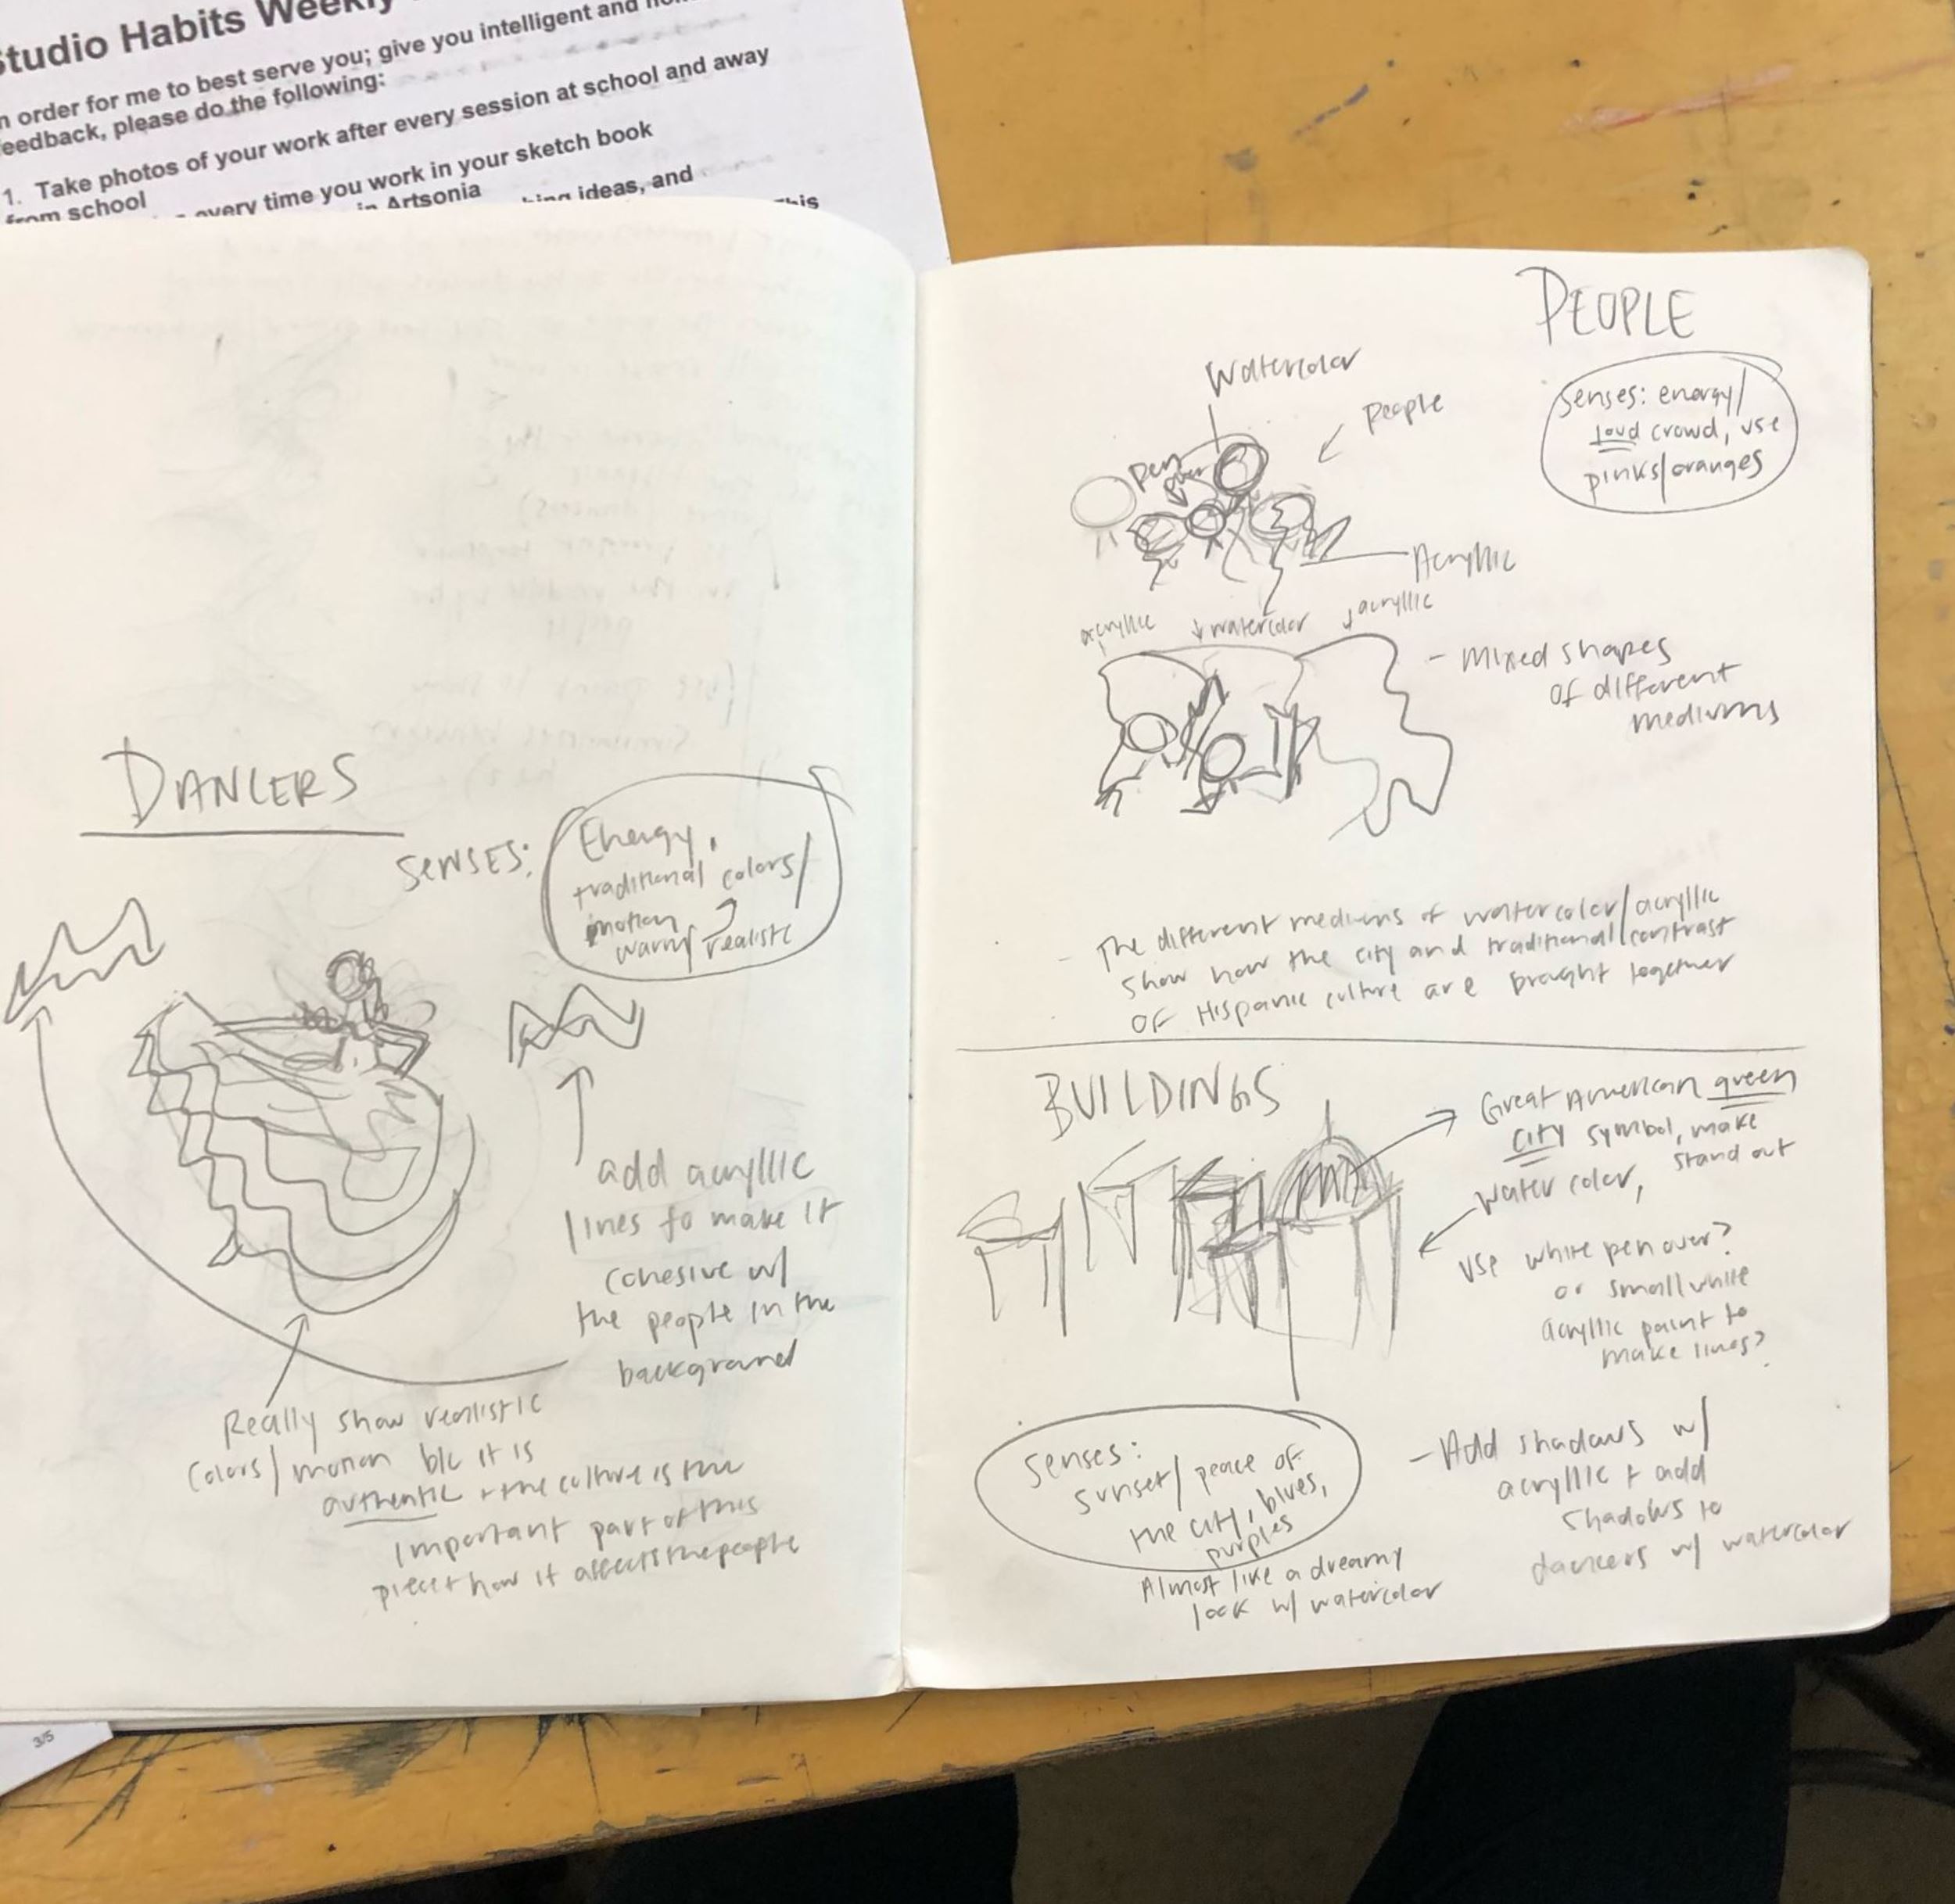 Studio Habits Weekly
n order for me to best serve you; give you intelligent and
eedback, please do the following:
1. Take photos of your work after every session at school and away
from school
every time you work in your sketch book
in Artsonia
ideas, and
This
DANCERS
SENSES:
Energy,
traditional colors/
motion
warm/realistic
add acryllic
lines to make it
cohesive w/
the people in the
background
Really show realistic
colors/motion b/c it is
authentic + the culture is the
important part of this
piece + how it affects the people
3/5
PEOPLE
Senses: energy/
loud crowd, use
pinks/oranges
Watercolor
People
Pen
Acryllic
acryllic
watercolor
acryllic
- Mixed shapes
of different
mediums
- The different mediums of watercolor/acryllic
show how the city and traditional contrast
of Hispanic culture are brought together
BUILDINGS
Great American green
city symbol, make
stand out
Water color,
Use white pen over?
or small white
acryllic paint to
make lines?
Senses:
sunset/peace of
the city, blues,
purples
Almost like a dreamy
look w/ watercolor
- Add shadows w/
acryllic + add
shadows to
dancers w/ watercolor